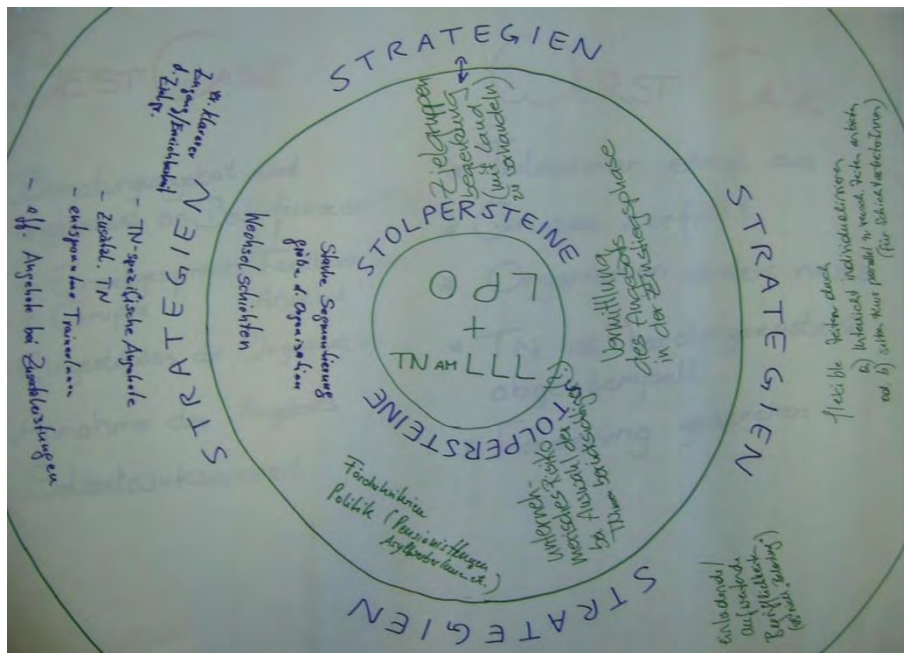 STRATEGIEN
STRATEGIEN
STRATEGIEN
STRATEGIEN
STOLPERSTEINE
STOLPERSTEINE
LPD
+
TN AM LLL
Zielgruppen
begrenzung
(mit Land
zu verhandeln)
Vermittlung
des Angebots
in der Einstiegsphase
Unterneh-
merisches Risiko
bei Auswahl der
berücksichtigen
Förderkriterien
Politik (PensionistInnen
AsylwerberInnen etc.)
Starke Segmentierung
größe d. Organisation
Wechselschichten
klarer
Zugang/Erreichbarkeit
d. Zielgr.
- TN-spezifische Angebote
- Zusätzl. TN
- entspannte TrainerInnen
- öff. Angebote bei Zusatzleistungen
flexible Zeiten durch
a) Unterricht individualisieren
b) selben Kurs parallel zu versch. Zeiten anbieten
(für SchichtarbeiterInnen)
einladende/
aufwertende
Begrifflichkeiten